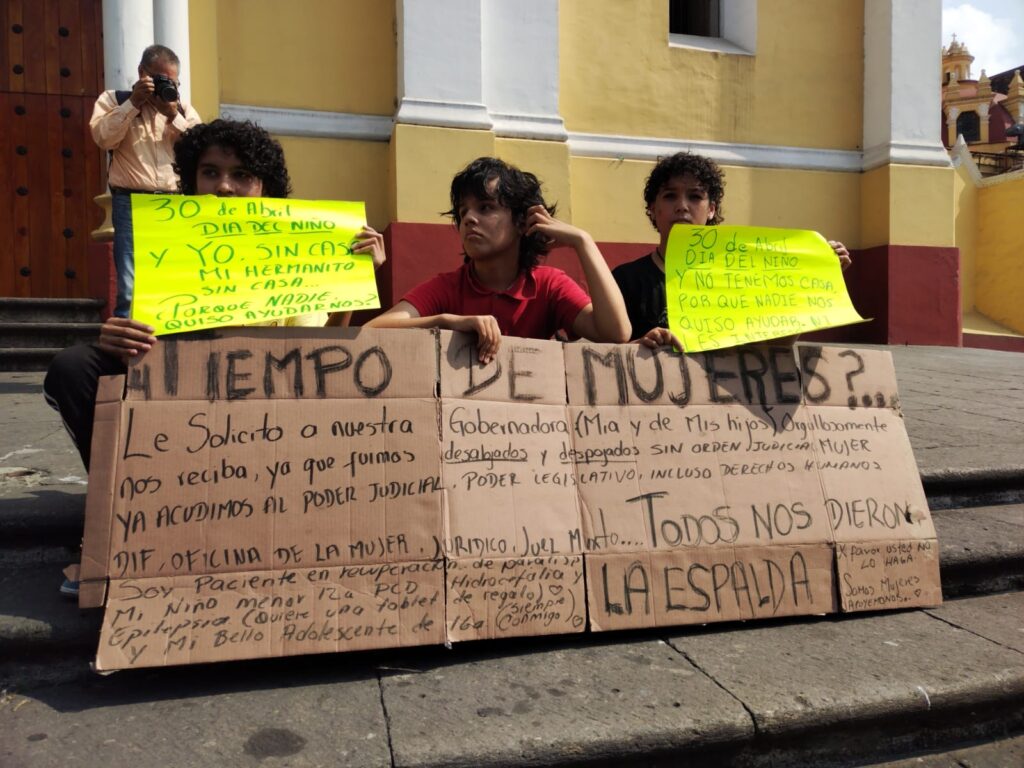 30 de Abril
DIA DEL NIÑO
Y YO, SIN CASA
MI HERMANITO
SIN CASA...
¿PORQUE NADIE
QUISO AYUDARNOS?
30 de Abril
DIA DEL NIÑO
Y NO TENEMOS CASA,
POR QUE NADIE NOS
QUISO AYUDAR. NI
TIEMPO DE MUJERES?...
Le Solicito a nuestra Gobernadora (Mia y de Mis hijos) Orgullosamente MUJER
nos reciba, ya que fuimos desalojados y despojados SIN ORDEN JUDICIAL
YA ACUDIMOS AL PODER JUDICIAL, PODER LEGISLATIVO, INCLUSO DERECHOS HUMANOS
DIF, OFICINA DE LA MUJER, JURIDICO, JUEZ Mixto.... TODOS NOS DIERON
LA ESPALDA
Soy Paciente en recuperación de paralisis
Mi Niño menor 12a PCD Hidrocefalia y
Epilepsia (Quiere una tablet de regalo)
Y Mi Bello Adolescente de 16a (Siempre Conmigo)
X favor usted NO
LO HAGA.
Somos Mujeres
APOYEMONOS..